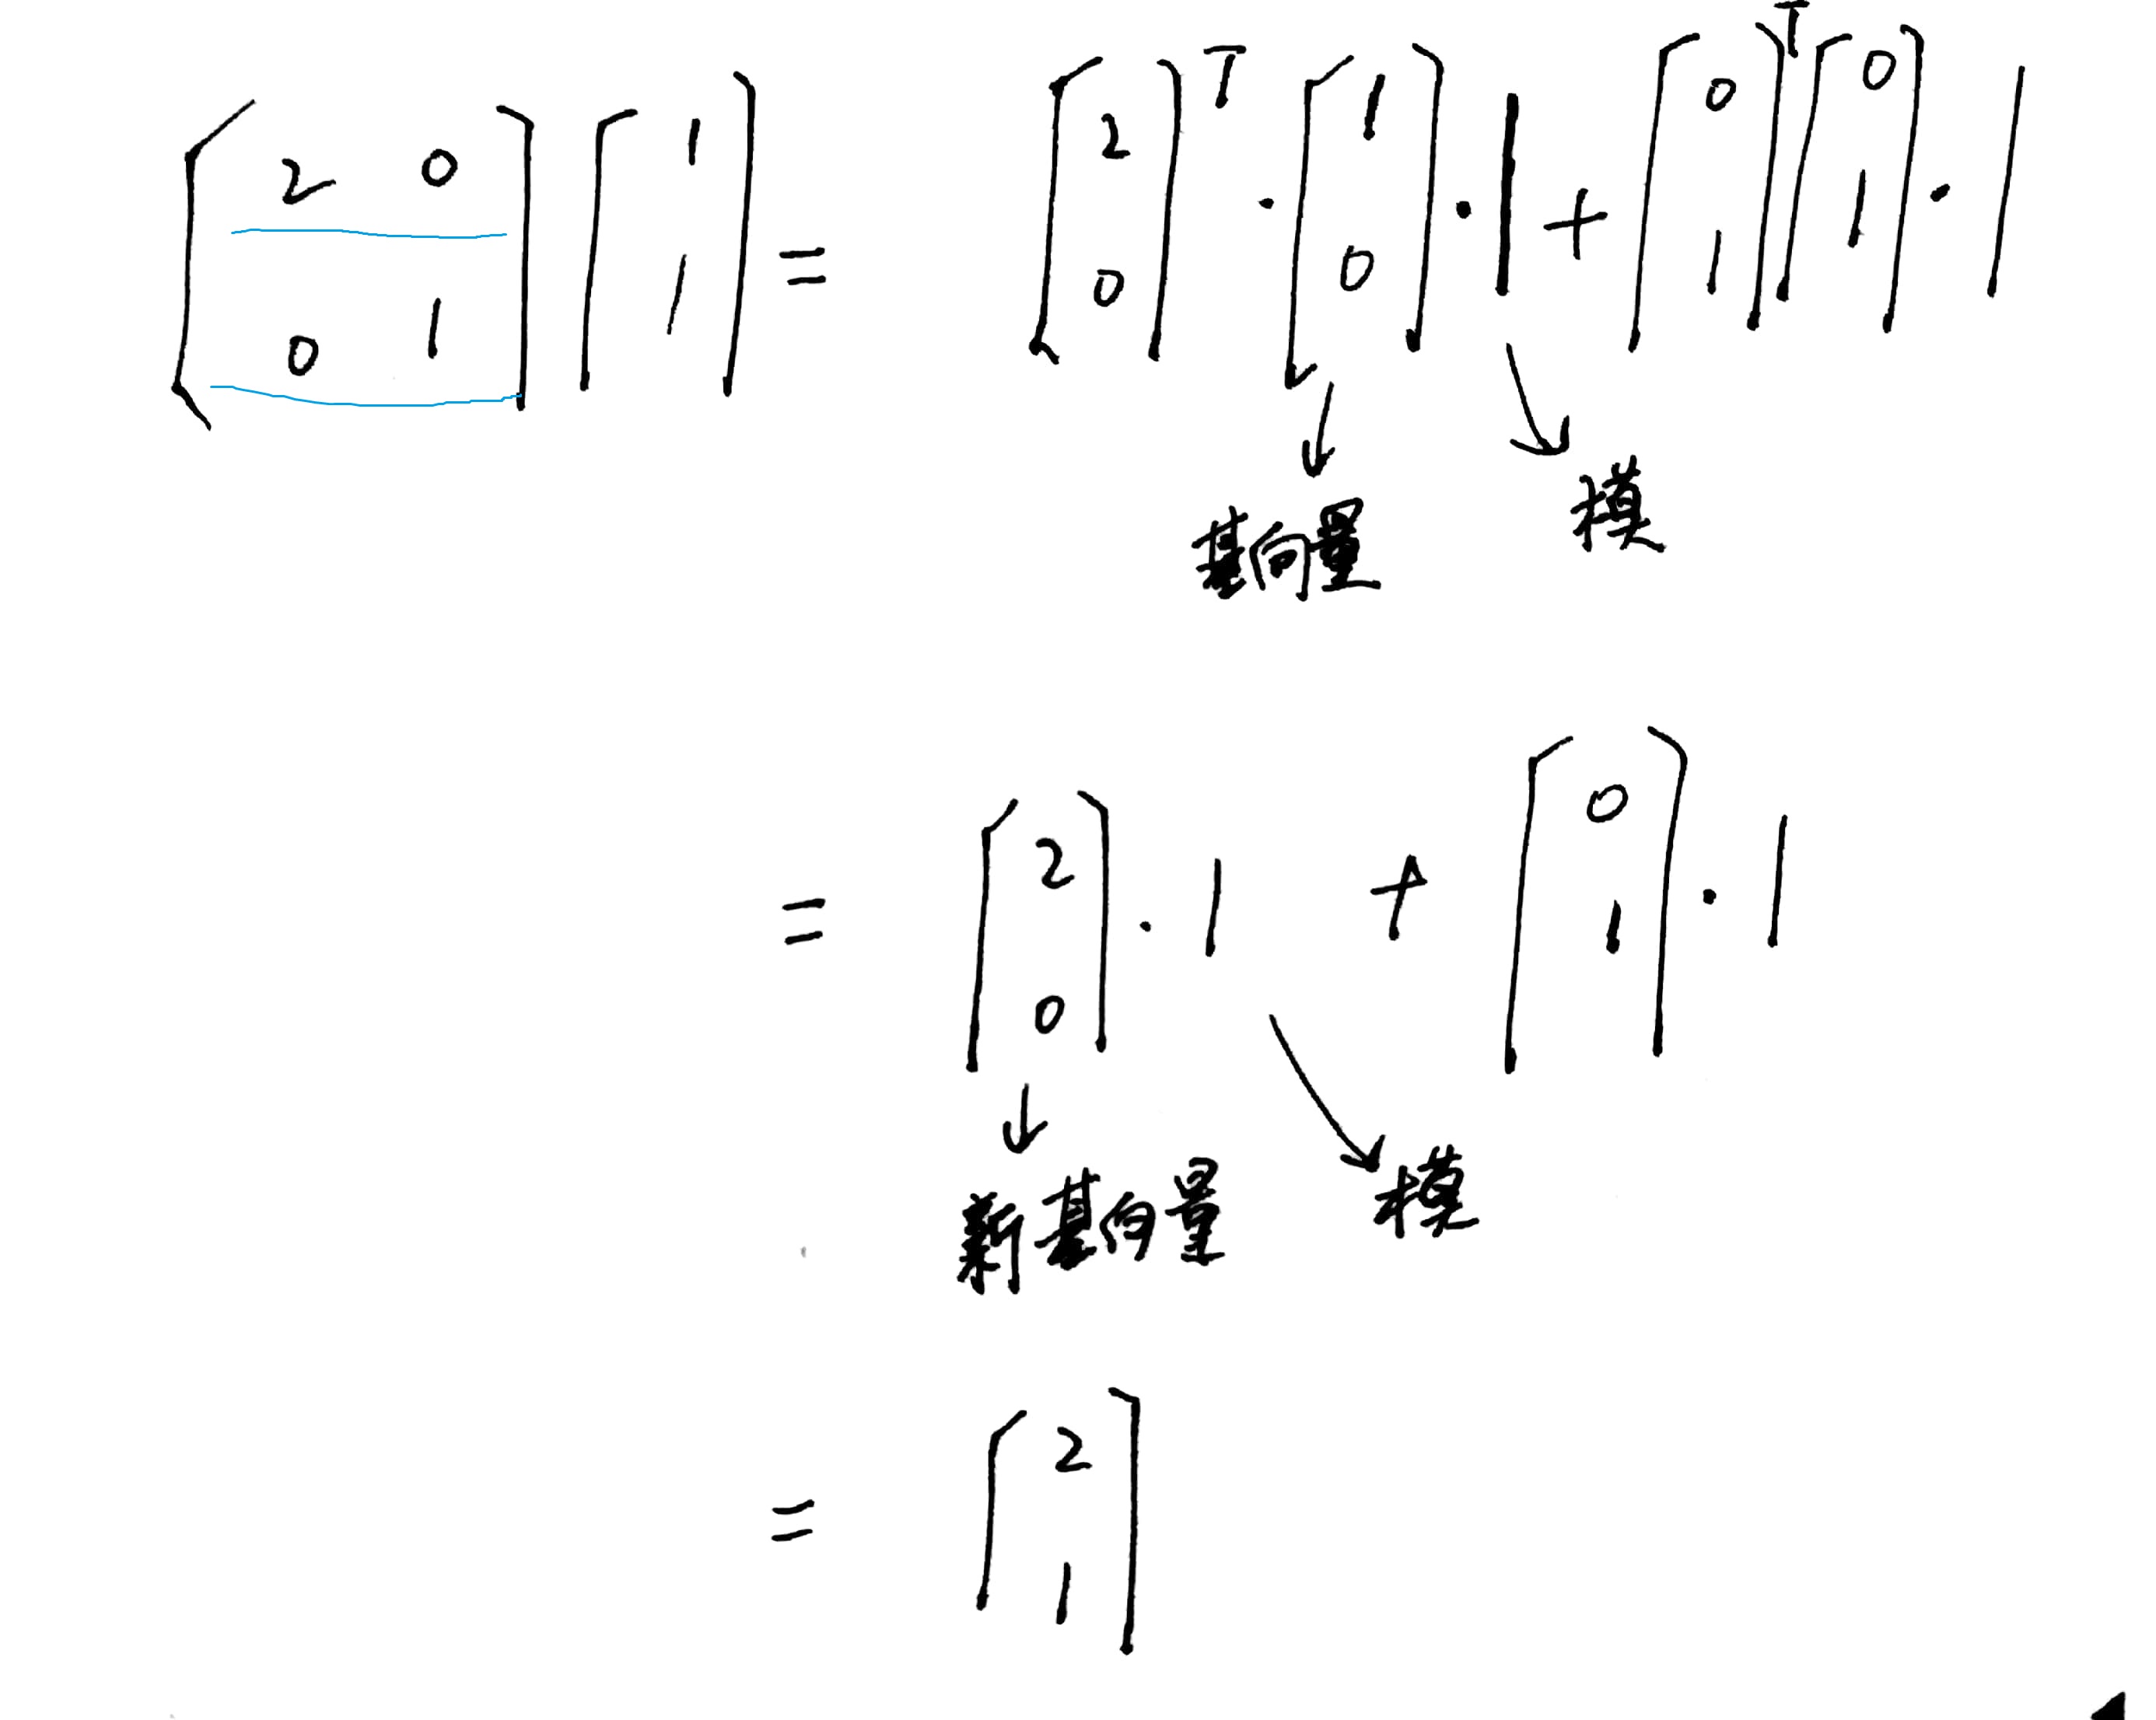 [2 0; 0 1] [1; 1] = [2; 0]ᵀ · [1; 0] · 1 + [0; 1]ᵀ [0; 1] · 1
基向量 模
= [2; 0] · 1 + [0; 1] · 1
新基向量 模
= [2; 1]